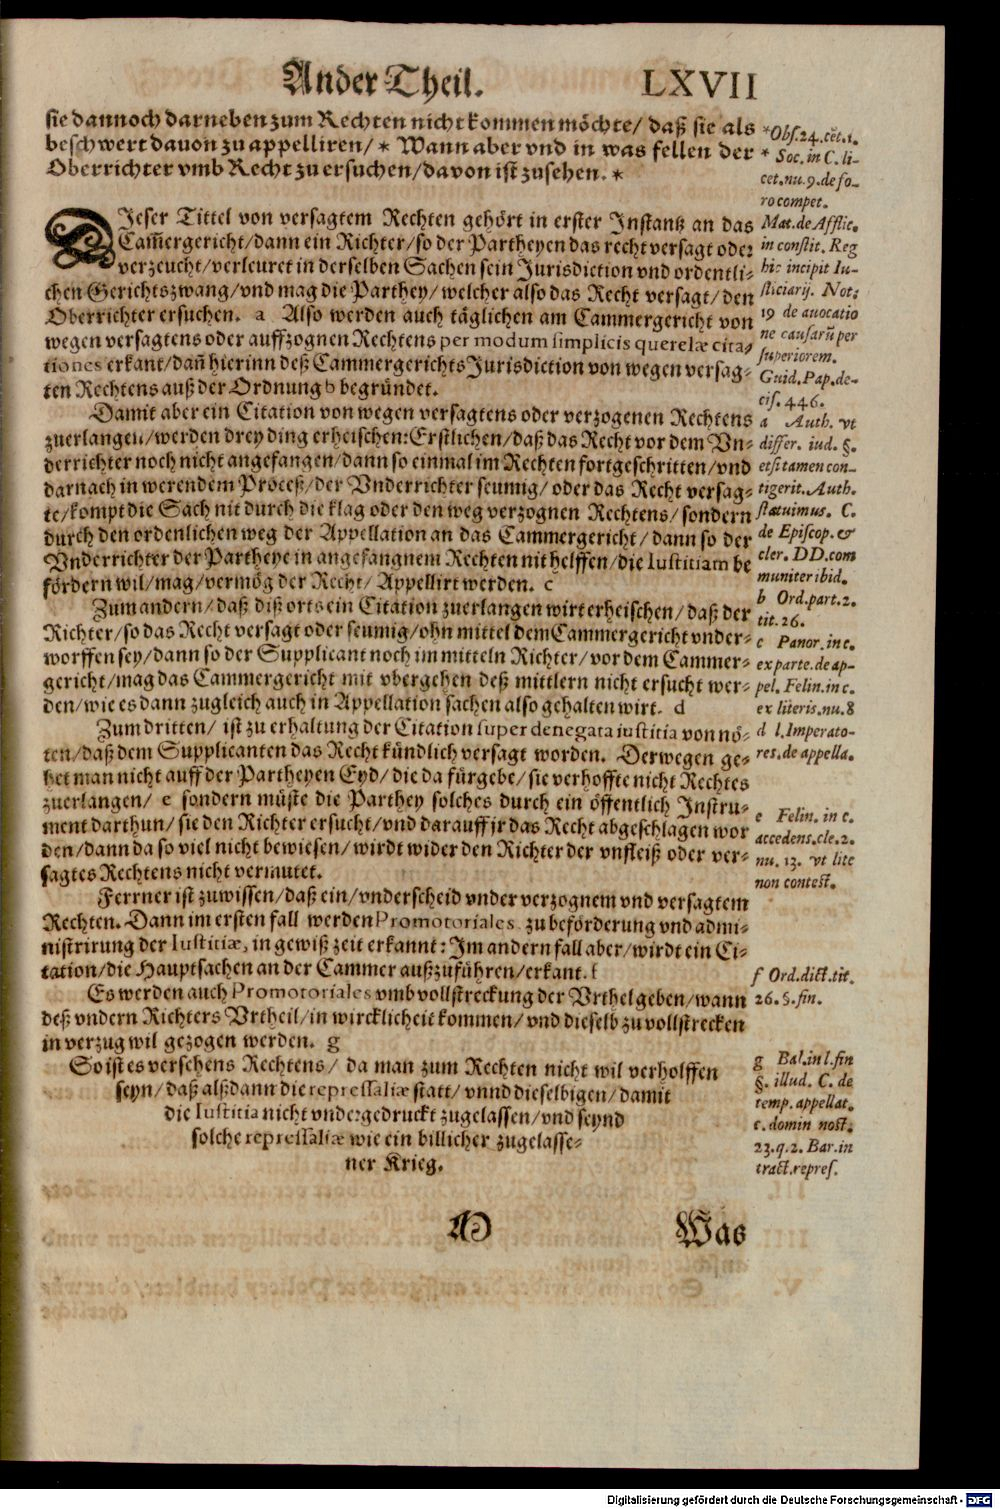 Ander Theil. LXVII
sie dannoch darneben zum Rechten nicht kommen möchte/ daß sie als
beschwert dauon zu appelliren/ * Wann aber vnd in was fellen der
Oberrichter vmb Recht zu ersuchen/ davon ist zusehen. *
DIeser Tittel von versagtem Rechten gehört in erster Instantz an das
Cam̃ergericht/ dann ein Richter/ so der Partheyen das recht versagt oder
verzeucht/ verleuret in derselben Sachen sein Jurisdiction vnd ordentli-
chen Gerichtszwang/ vnd mag die Parthey/ welcher also das Recht versagt/ den
Oberrichter ersuchen. a Also werden auch täglichen am Cammergericht von
wegen versagtens oder auffzognen Rechtens per modum simplicis querelæ cita-
tiones erkant/ dañ hierinn deß Cammergerichts Jurisdiction von wegen versag-
ten Rechtens auß der Ordnung b begründet.
Damit aber ein Citation von wegen versagtens oder verzogenen Rechtens
zuerlangen/ werden drey ding erheischen: Erstlichen/ daß das Recht vor dem Vn-
derrichter noch nicht angefangen/ dann so einmal im Rechten fortgeschritten/ vnd
darnach in werendem Proceß/ der Vnderrichter seumig/ oder das Recht versag-
te/ kompt die Sach nit durch die klag oder den weg verzognen Rechtens/ sondern
durch den ordenlichen weg der Appellation an das Cammergericht/ dann so der
Vnderrichter der Partheye in angefangnem Rechten nit helffen/ die Iustitiam be
fördern wil/ mag/ vermög der Recht/ Appellirt werden. c
Zum andern/ daß diß orts ein Citation zuerlangen wirt erheischen/ daß der
Richter/ so das Recht versagt oder seumig/ ohn mittel dem Cammergericht vnder-
worffen sey/ dann so der Supplicant noch im mitteln Richter/ vor dem Cammer-
gericht/ mag das Cammergericht mit vbergehen deß mittlern nicht ersucht wer-
den/ wie es dann zugleich auch in Appellation sachen also gehalten wirt. d
Zum dritten/ ist zu erhaltung der Citation super denegata iustitia von nö-
ten/ daß dem Supplicanten das Recht kündlich versagt worden. Derwegen ge-
het man nicht auff der Partheyen Eyd/ die da fürgebe/ sie verhoffte nicht Rechtes
zuerlangen/ e sondern müste die Parthey solches durch ein öffentlich Instru-
ment darthun/ sie den Richter ersucht/ vnd darauff jr das Recht abgeschlagen wor
den/ dann da so viel nicht bewiesen/ wirdt wider den Richter der vnfleiß oder ver-
sagtes Rechtens nicht vermutet.
Ferrner ist zuwissen/ daß ein/ vnderscheid vnder verzognem vnd versagtem
Rechten. Dann im ersten fall werden Promotoriales zu beförderung vnd admi-
nistrirung der Iustitiæ, in gewiß zeit erkannt: Im andern fall aber/ wirdt ein Ci-
tation/ die Hauptsachen an der Cammer außzuführen/ erkant. f
Es werden auch Promotoriales vmb vollstreckung der Vrthel geben/ wann
deß vndern Richters Vrtheil/ in wircklicheit kommen/ vnd dieselb zu vollstrecken
in verzug wil gezogen werden. g
So ist es versehens Rechtens/ da man zum Rechten nicht wil verholffen
seyn/ daß alßdann die repressaliæ statt/ vnnd dieselbigen/ damit
die Iustitia nicht vndergedruckt zugelassen/ vnd seynd
solche repressaliæ wie ein billicher zugelasse-
ner Krieg.
Was
*Obs. 24. cẽt. 1.
* Soc. in C. li-
cet. nu. 9. de fo-
ro compet.
Mat. de Afflic.
in constit. Reg
hic incipit Iu-
sticiarij. Not:
19 de auocatio
ne causarũ per
superiorem.
Guid. Pap. de-
cis. 446.
a Auth. vt
differ. iud. §.
etsi tamen con-
tigerit. Auth.
statuimus. C.
de Episcop. &
cler. DD. com
muniter ibid.
b Ord. part. 2.
tit. 26.
c Panor. in c.
ex parte. de ap-
pel. Felin. in c.
ex literis. nu. 8
d l. Imperato-
res. de appella.
e Felin. in c.
accedens. cle. 2.
nu. 13. vt lite
non contest.
f Ord. dict. tit.
26. §. fin.
g Bal. in l. fin
§. illud. C. de
temp. appellat.
c. domin nost.
23. q. 2. Bar. in
tract. repres.
Digitalisierung gefördert durch die Deutsche Forschungsgemeinschaft - DFG